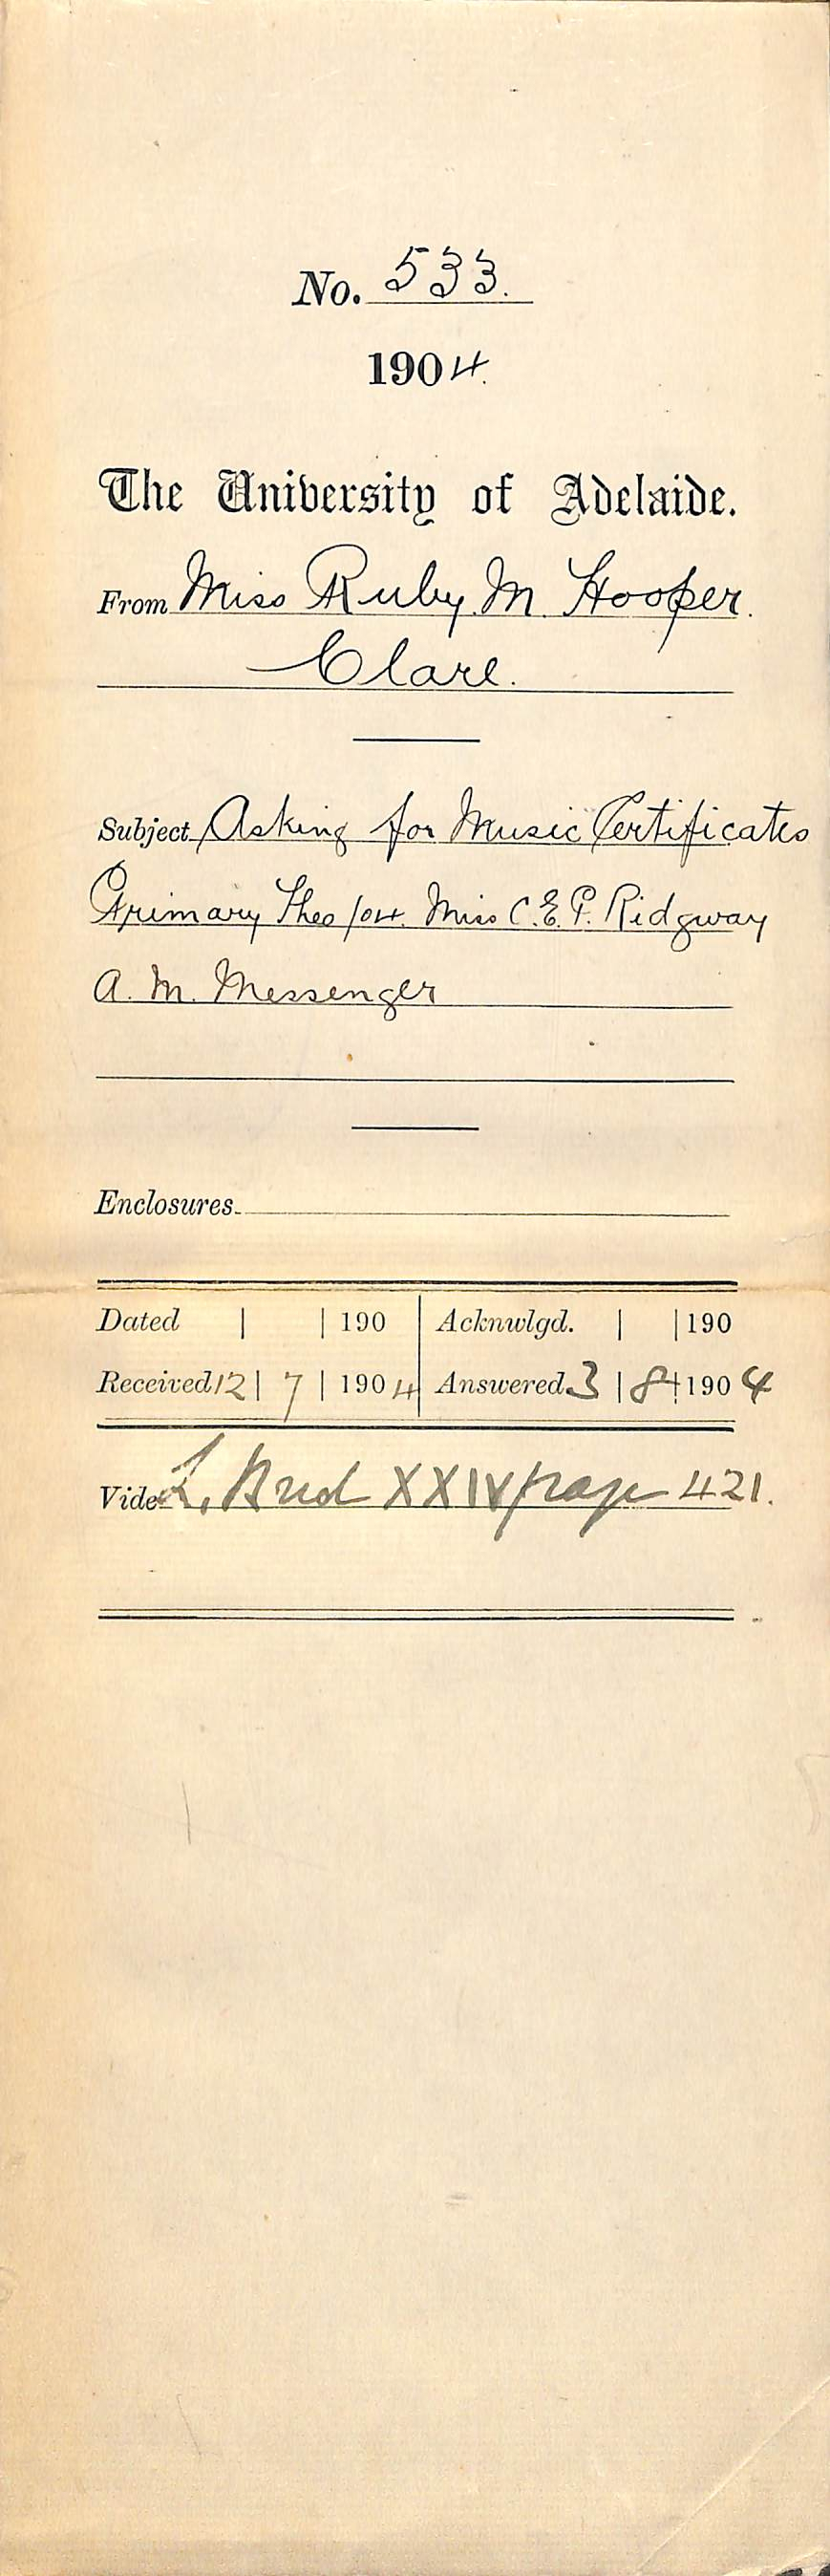 No. 533.
1904.
The University of Adelaide.
From Miss Ruby M. Hooper.
Clare.
Subject Asking for Music Certificates
Primary Theo /04. Miss C. E. P. Ridgway
A. M. Messenger
Enclosures
Dated | | 190 Acknwlgd. | | 190
Received 12 | 7 | 1904 Answered 3 | 8 | 1904
Vide L. XXIV page 421.